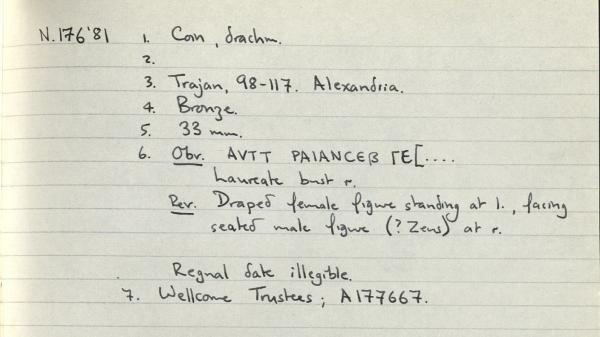 N.176'81 1. Coin, drachm.
2.
3. Trajan, 98-117. Alexandria.
4. Bronze.
5. 33 mm.
6. Obv. ΑVΤΤ ΡΑΙΑΝCΕΒ ΓΕ[....
Laureate bust r.
Rev. Draped female figure standing at l., facing
seated male figure (? Zeus) at r.
Regnal date illegible.
7. Wellcome Trustees; A177667.